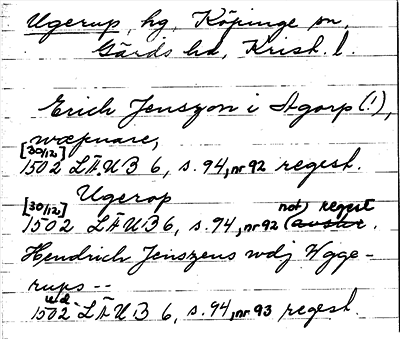 Ugerup, hg, Köpinge sn,
Gärds hd, Krist. l.
Erich Jenszon i Agorp (!),
wæpnare,
[30/12]
1502 LÄUB 6, s. 94, nr 92 regest.
Ugerop
[30/12] not) regest
1502 LÄUB 6, s. 94, nr 92 (avskr.
Hendrich Jenszens wdj Vgge-
rups --
u.d.
1502 LÄUB 6, s. 94, nr 93 regest.